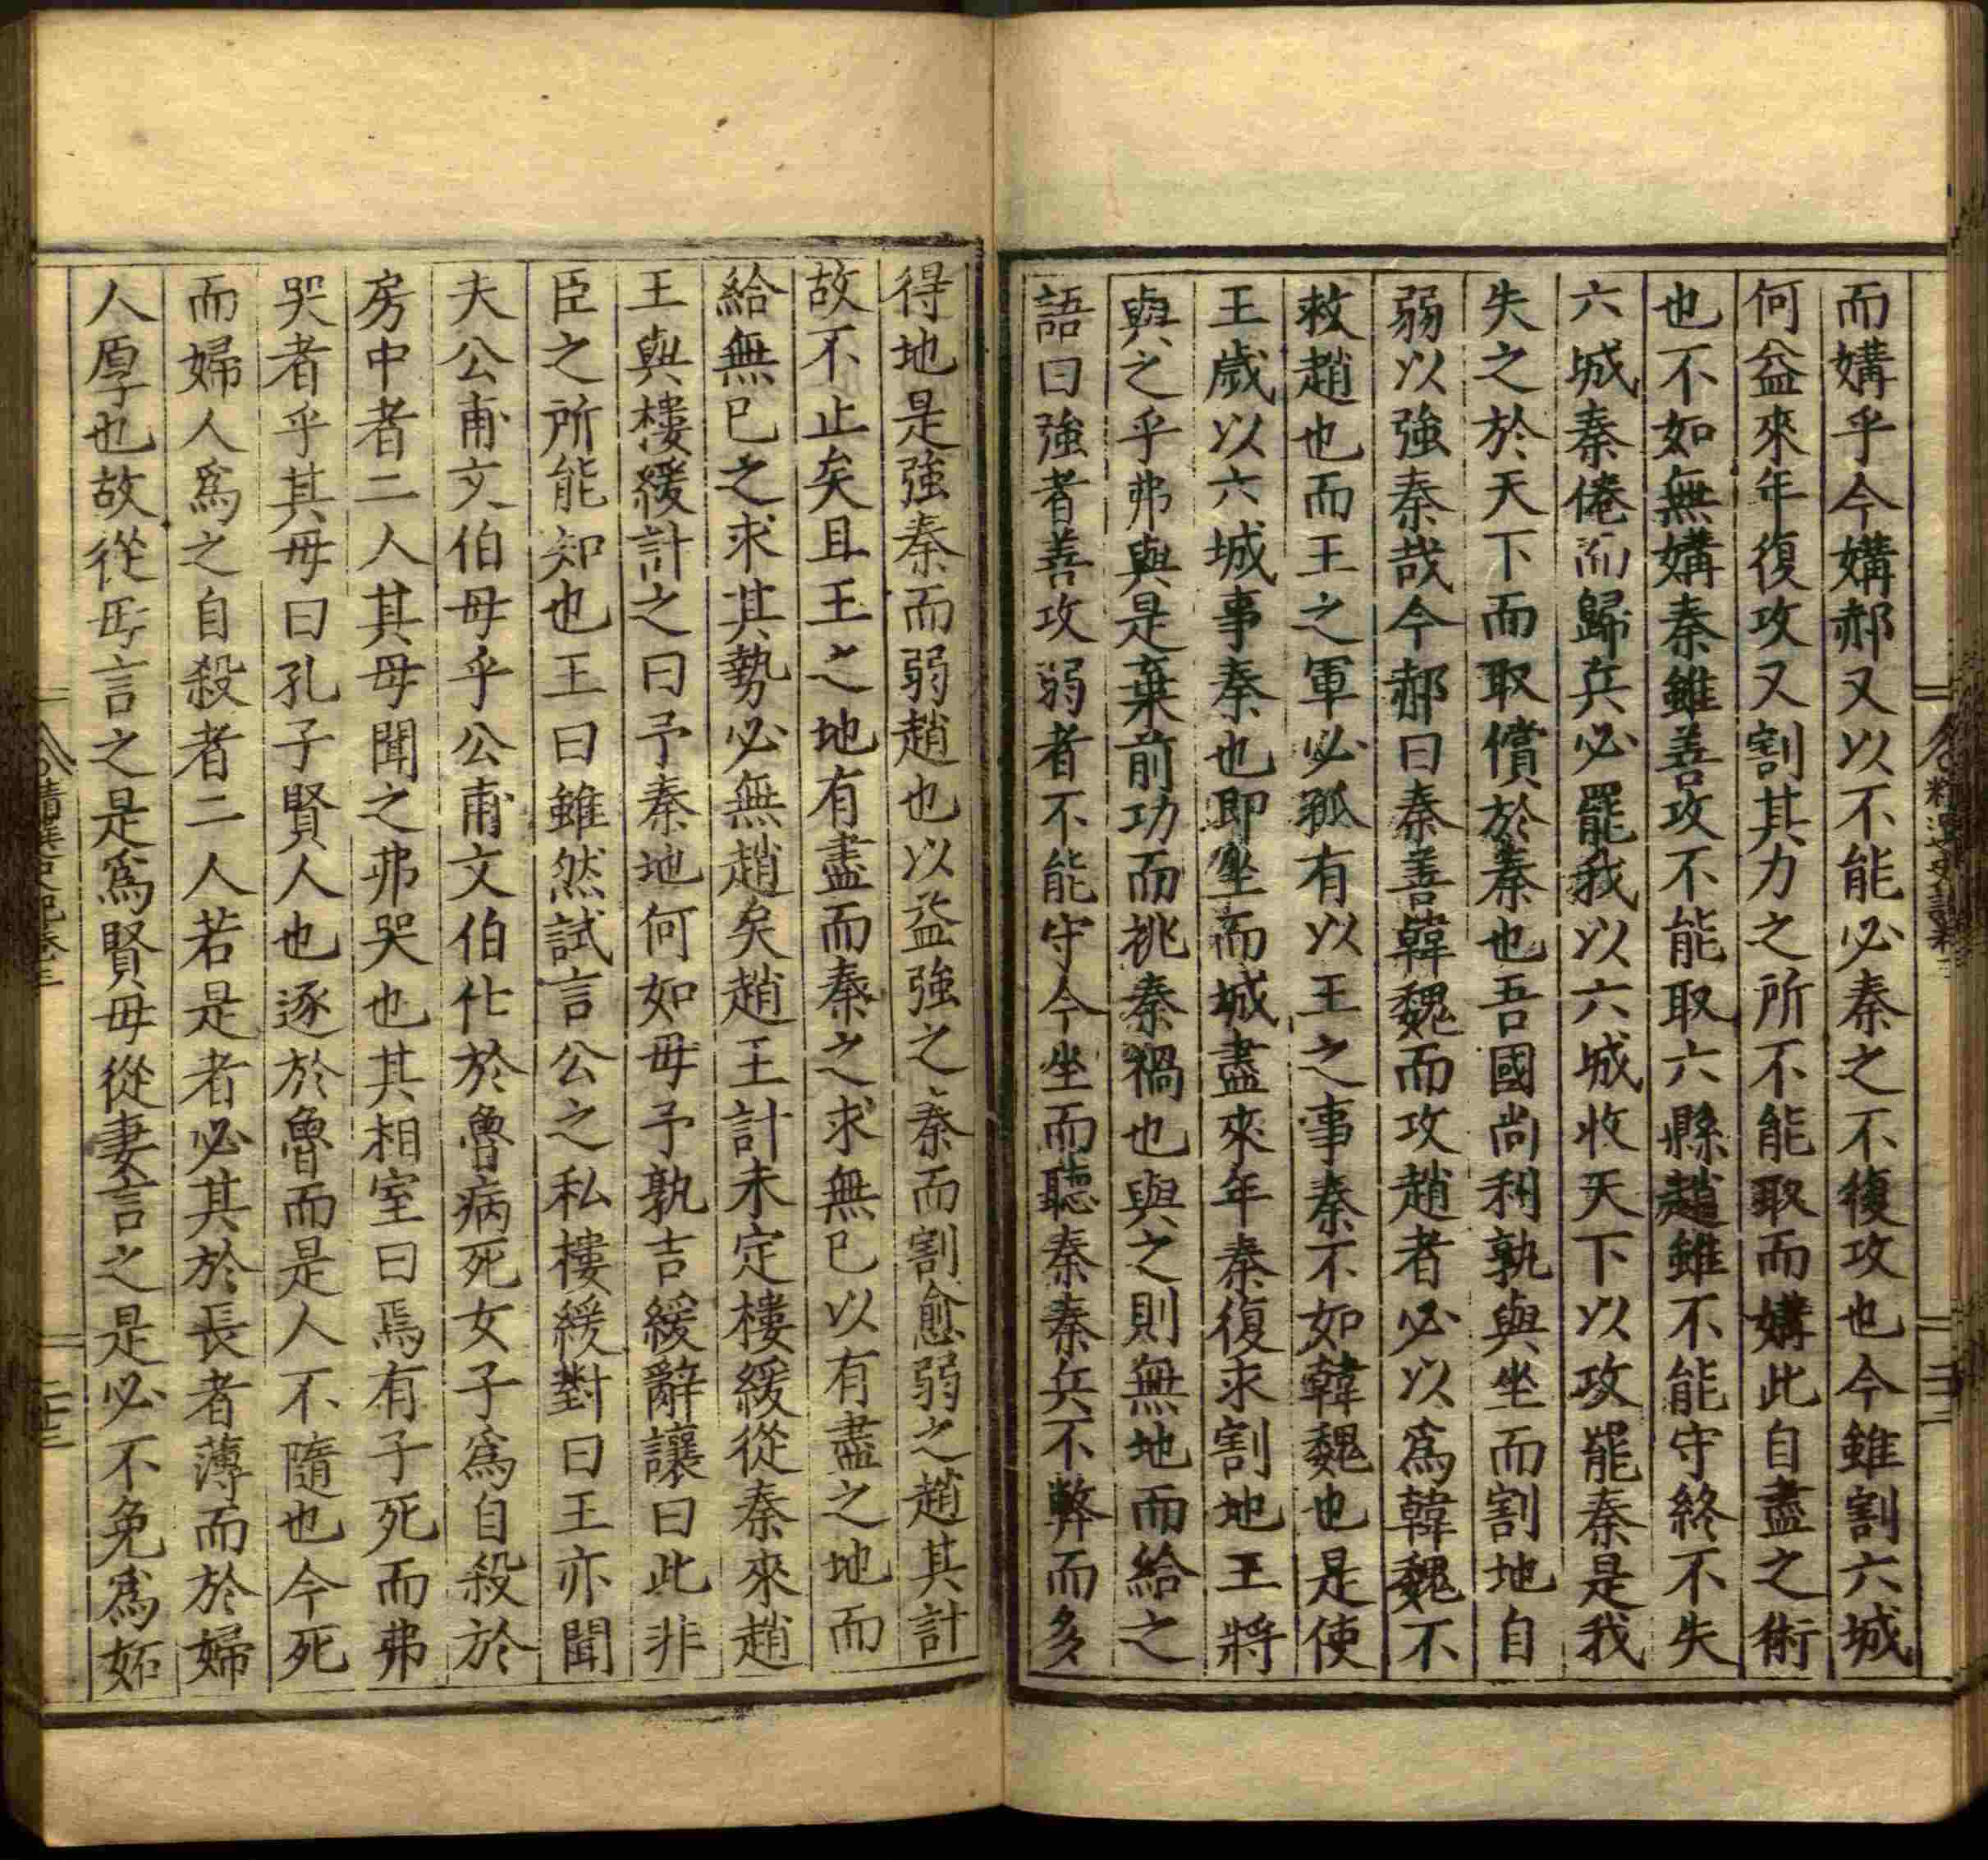 而媾乎今媾郝又以不能必秦之不復攻也今雖割六城
何益來年復攻又割其力之所不能取而媾此自盡之術
也不如無媾秦雖善攻不能取六縣趙雖不能守終不失
六城秦倦而歸兵必罷我以六城收天下以攻罷秦是我
失之於天下而取償於秦也吾國尚利孰與坐而割地自
弱以強秦哉今郝曰秦善韓魏而攻趙者必以爲韓魏不
救趙也而王之軍必孤有以王之事秦不如韓魏也是使
王歲以六城事秦也即坐而城盡來年秦復求割地王將
與之乎弗與是棄前功而挑秦禍也與之則無地而給之
語曰強者善攻弱者不能守今坐而聽秦秦兵不弊而多
得地是強秦而弱趙也以益強之秦而割愈弱之趙其計
故不止矣且王之地有盡而秦之求無已以有盡之地而
給無已之求其勢必無趙矣趙王計未定樓緩從秦來趙
王與樓緩計之曰予秦地何如毋予孰吉緩辭讓曰此非
臣之所能知也王曰雖然試言公之私樓緩對曰王亦聞
夫公甫文伯母乎公甫文伯仕於魯病死女子爲自殺於
房中者二人其母聞之弗哭也其相室曰焉有子死而弗
哭者乎其母曰孔子賢人也逐於魯而是人不隨也今死
而婦人爲之自殺者二人若是者必其於長者薄而於婦
人厚也故從母言之是爲賢母從妻言之是必不免爲妬
精選史記卷三
二十三